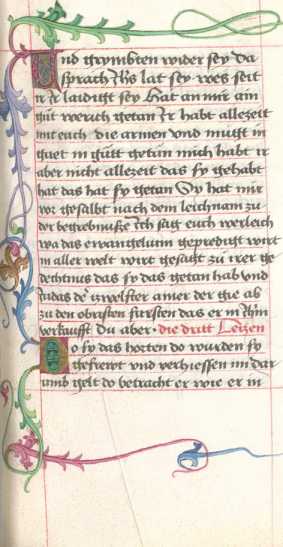 Und grymbten wider sey da
sprach Jhs lat sey wes seit
ir ir laidigt sey Hat an mir ain
gut werich getan Ir habt allezeit
mit euch die armen vnd mugt in
guet in gutt getun mich habt ir
aber nicht allezeit das sy gehabt
hat das hat sy getan Sy hat mir
vor gesalbt nach dem leichnam zu
der begrebnuße Ich sag euch werleich
wa das ewangelium geprediget wirt
in aller welt wirt gesagt zu irer ge
dechtnus das sy das getan hab vnd
Judas der zwelfter ainer der gie ab
zu den obristen fursten das er in
verkaufft Du aber · die dritt Leczen
Do sy das horten do wurden sy
gefrewt vnd verhiessen im dar
umb gelt do betracht er wie er in